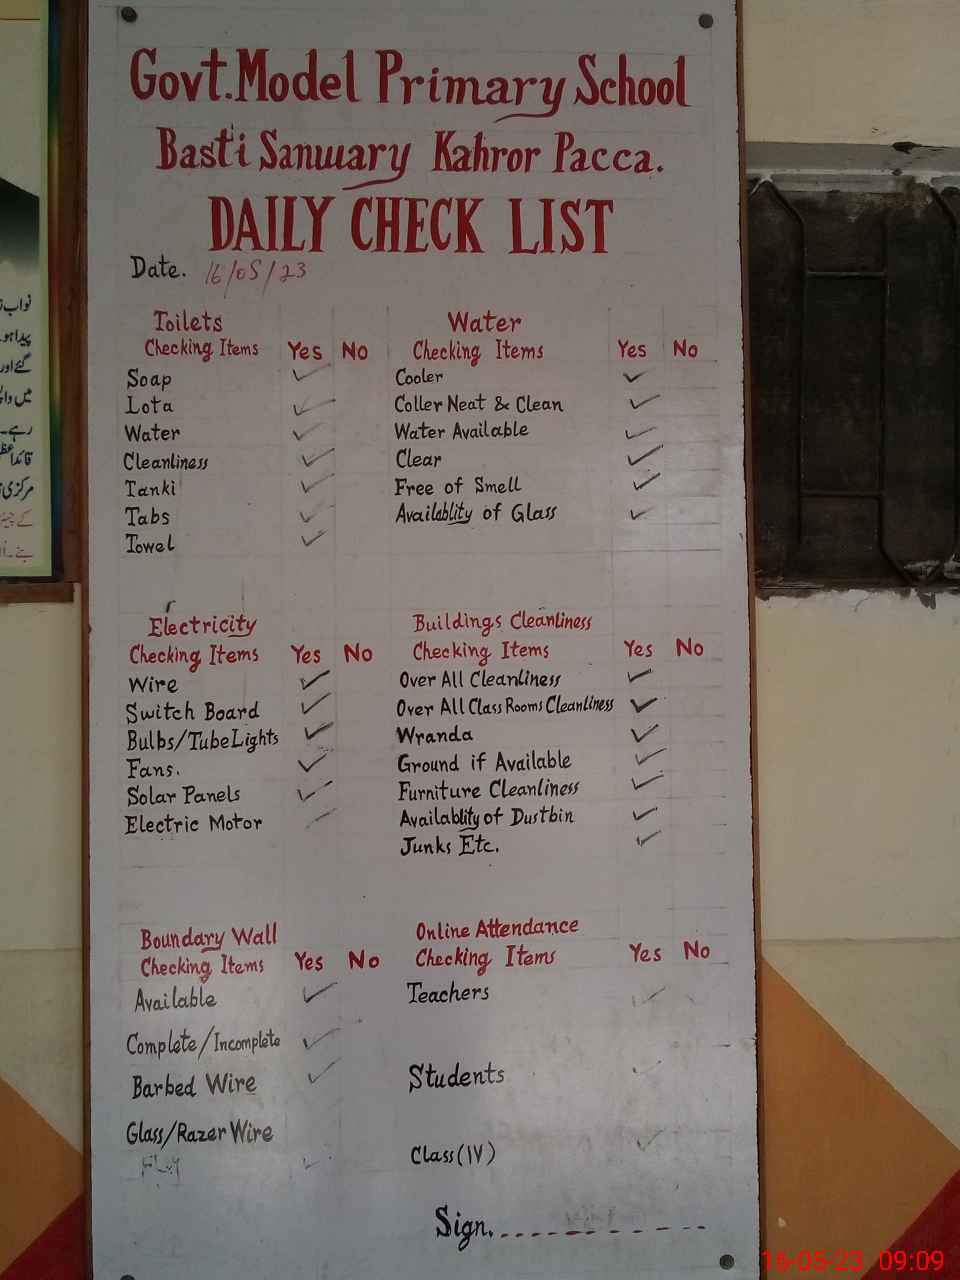 Govt. Model Primary School
Basti Sanwary Kahror Pacca.
DAILY CHECK LIST
Date. 16/05/23
Toilets
Checking Items Yes No
Soap ✓
Lota ✓
Water ✓
Cleanliness ✓
Tanki ✓
Tabs ✓
Towel ✓
Water
Checking Items Yes No
Cooler ✓
Coller Neat & Clean ✓
Water Available ✓
Clear ✓
Free of Smell ✓
Availablity of Glass ✓
Electricity
Checking Items Yes No
Wire ✓
Switch Board ✓
Bulbs/TubeLights ✓
Fans. ✓
Solar Panels ✓
Electric Motor ✓
Buildings Cleanliness
Checking Items Yes No
Over All Cleanliness ✓
Over All Class Rooms Cleanliness ✓
Wranda ✓
Ground if Available ✓
Furniture Cleanliness ✓
Availablity of Dustbin ✓
Junks Etc. ✓
Boundary Wall
Checking Items Yes No
Available ✓
Complete/Incomplete ✓
Barbed Wire ✓
Glass/Razer Wire
Online Attendance
Checking Items Yes No
Teachers ✓
Students ✓
Class (IV) ✓
Sign.
نواب
پیدا ہو
گئے اور
میں
رہے۔
قائد
مرکزی
کے
16-05-23 09:09